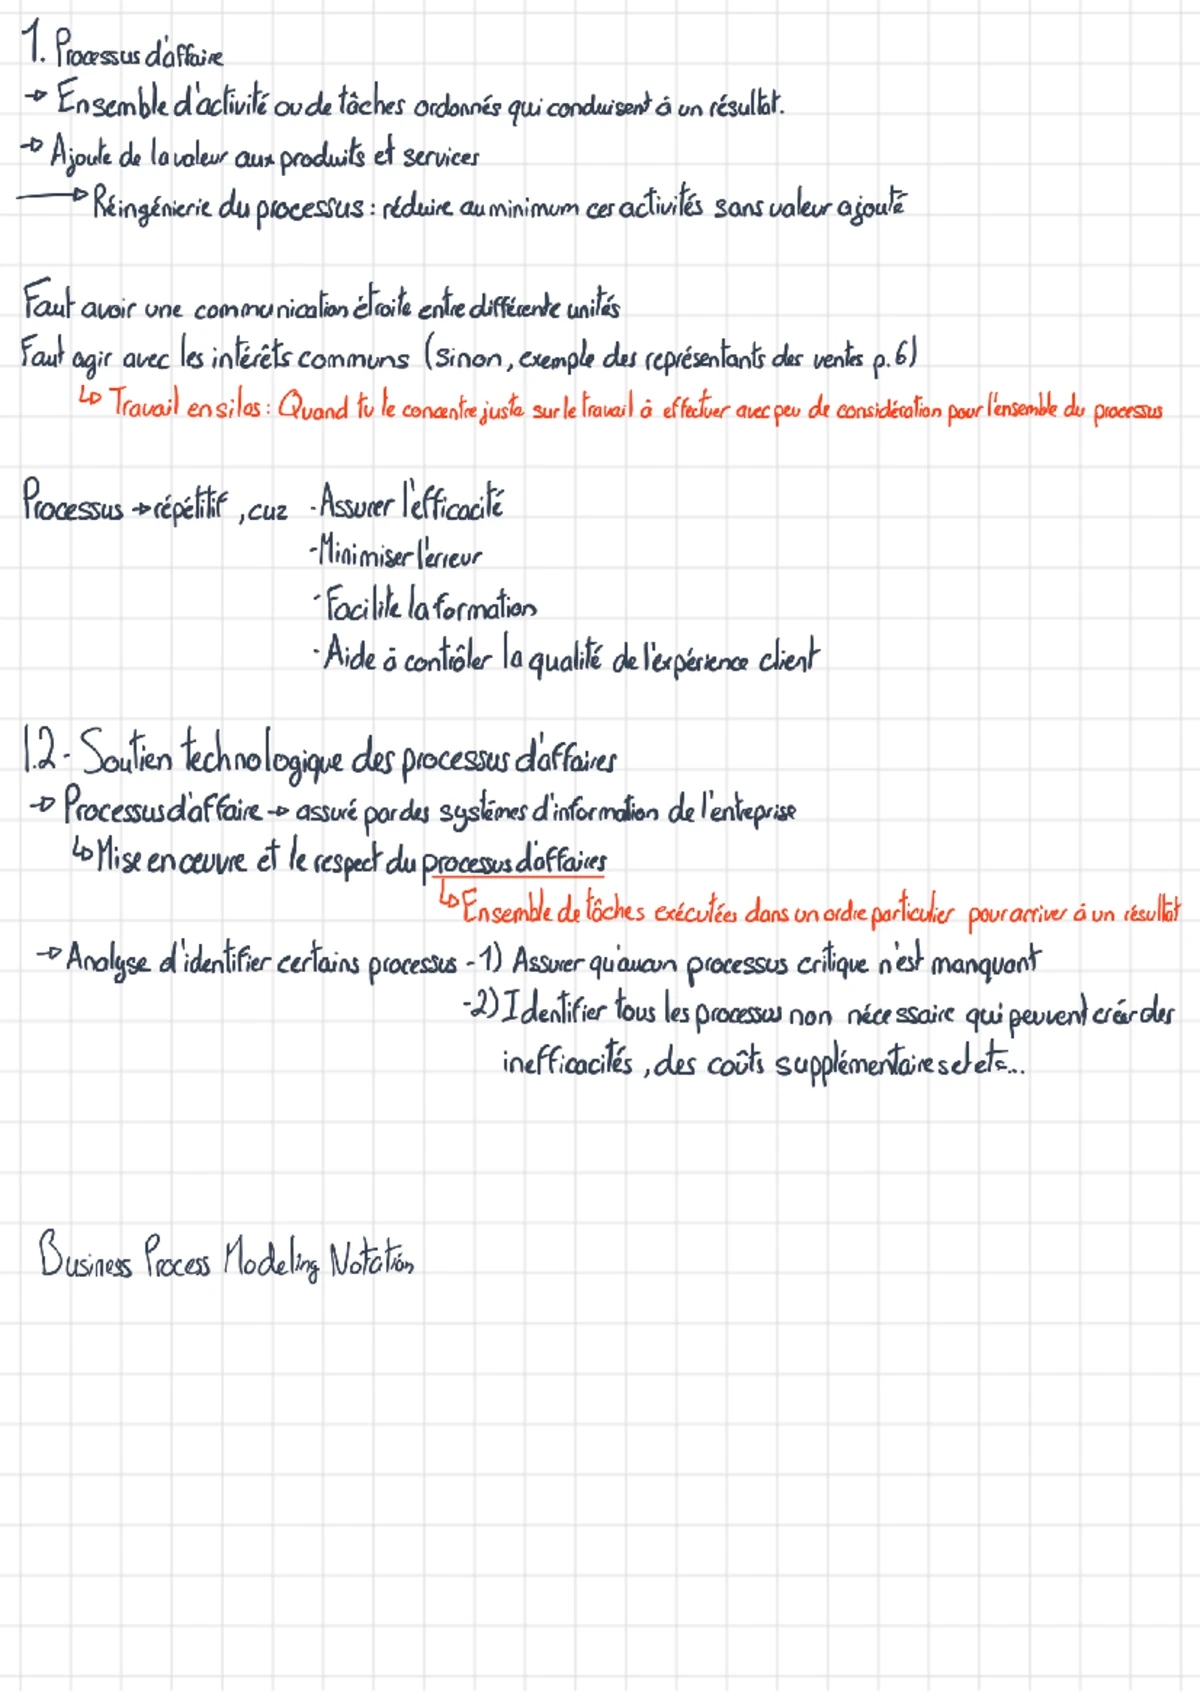 1. Processus d'affaire
→ Ensemble d'activité ou de tâches ordonnés qui conduisent à un résultat.
→ Ajoute de la valeur aux produits et services
→ Réingénierie du processus : réduire au minimum ces activités sans valeur ajouté
Faut avoir une communication étroite entre différente unités
Faut agir avec les intérêts communs (sinon, exemple des représentants des ventes p.6)
↳ Travail en silos : Quand tu te concentre juste sur le travail à effectuer avec peu de considération pour l'ensemble du processus
Processus → répétitif, cuz · Assurer l'efficacité
· Minimiser l'erreur
· Facilite la formation
· Aide à contrôler la qualité de l'expérience client
1.2 - Soutien technologique des processus d'affaires
→ Processus d'affaire → assuré par des systèmes d'information de l'enteprise
↳ Mise en œuvre et le respect du processus d'affaires
↳ Ensemble de tâches exécutées dans un ordre particulier pour arriver à un résultat
→ Analyse d'identifier certains processus - 1) Assurer qu'aucun processus critique n'est manquant
- 2) Identifier tous les processus non nécessaire qui peuvent créer des
inefficacités, des coûts supplémentaires et etc...
Business Process Modeling Notation